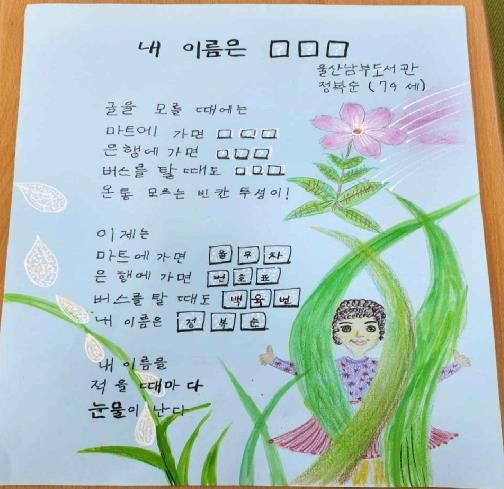 내 이름은 □□□
울산남부도서관
정복순 (74 세)
글을 모를 때에는
마트에 가면 □□□
은행에 가면 □□□
버스를 탈 때도 □□□
온통 모르는 빈칸 투성이!
이제는
마트에 가면 율무차
은행에 가면 번호표
버스를 탈 때도 백육번
내 이름은 정복순
내 이름을
적을 때마다
눈물이 난다